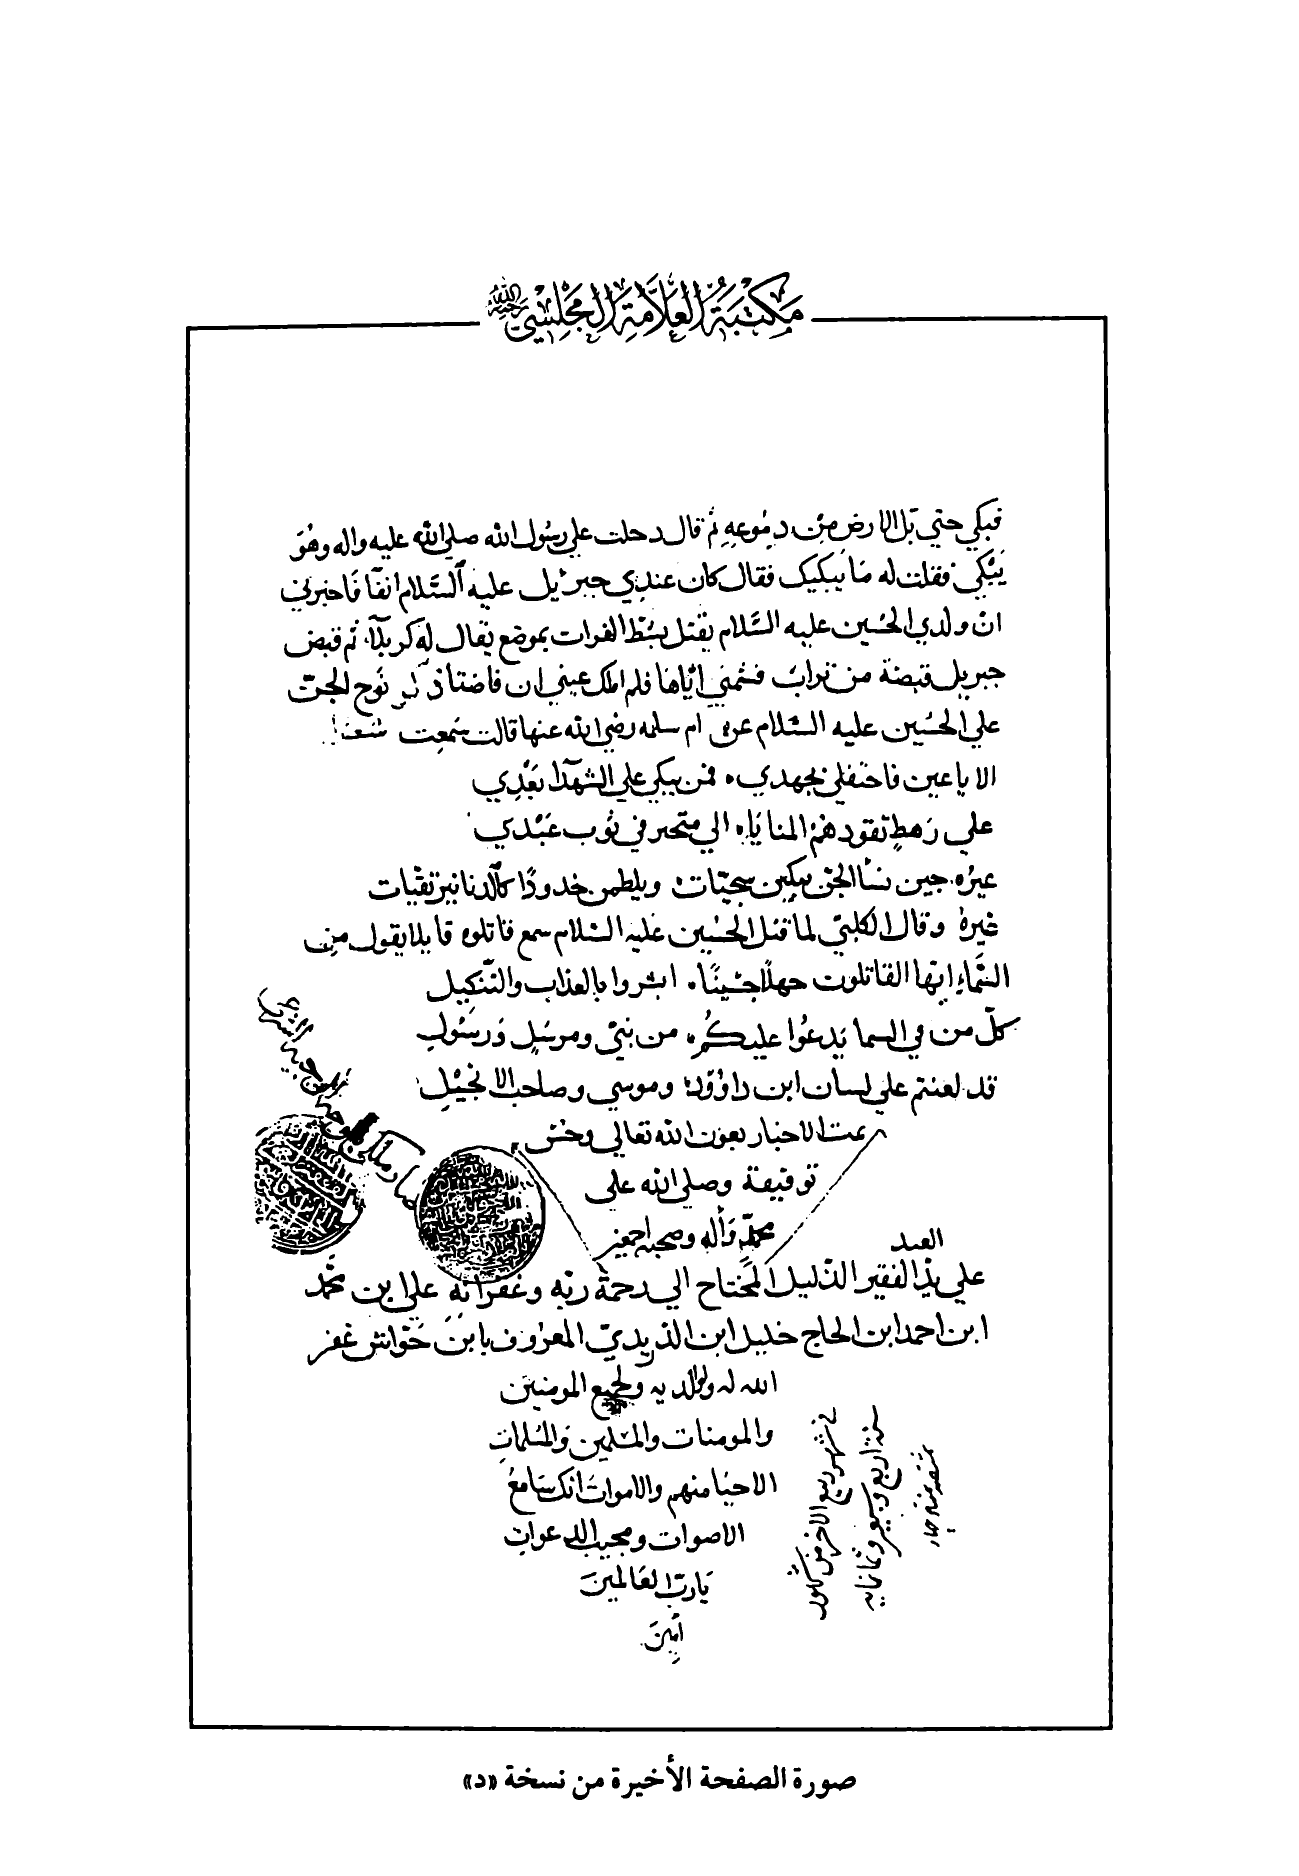 مكتبة العلامة المجلسي رحمه الله
فبكي حتي بل الارض من دموعه ثم قال دخلت علي رسول الله صلي الله عليه واله وهو
يبكي فقلت له ما يبكيك فقال كان عندي جبرئيل عليه السلام انفا فاخبرني
ان ولدي الحسين عليه السلام يقتل بشط الفرات بموضع يقال له كربلآ ثم قبض
جبريل قبضة من تراب فشمني اياها فلم املك عيني ان فاضتا نوح الجن
علي الحسين عليه السلام عن ام سلمه رضي الله عنها قالت سمعت
الا ياعين فاحتفلي بجهدي فمن يبكي علي الشهدآ بعدي
علي رهط تقودهم المنايا الي متحبر في ثوب عبدي
غيره جين نسأ الجن يبكين سجيات ويلطمن خدودًا كالدنانير نقيات
غيره وقال الكلبي لما قتل الحسين عليه السلام سمع قاتلوه قايلا يقول من
السماء ايها القاتلون جهلا حسينًا ابشروا بالعذاب والتنكيل
كل من في السما يدعوا عليكم من نبي ومرسل ورسول
قد لعنتم علي لسان ابن داؤود وموسي وصاحب الانجيل
تمت الاخبار بعون الله تعالي وحسن
توفيقة وصلي الله علي
محمد وأله وصحبه اجمعين
العبد
علي يد الفقير الذليل المحتاج الي رحمة ربه وغفرانه علي ابن محمد
ابن احمد ابن الحاج خليل ابن الذيدي المعروف بابن خواتش غفر
الله له ولوالديه ولجميع المومنين
والمومنات والمسلمين والمسلمات
الاحيا منهم والاموات انك سامع
الاصوات ومجيب الدعوات
يارب العالمين
أمين
في شهر ربيع الاخر من شهور
سنة اربع وسبعين وثمانمايه
صورة الصفحة الأخيرة من نسخة «د»